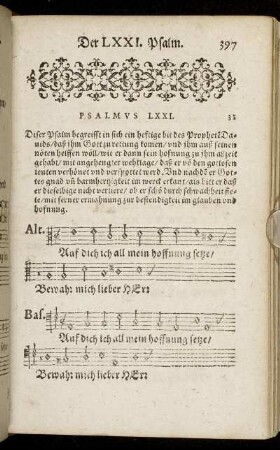 Der LXXI. Psalm. 397
PSALMVS LXXI.
Diser Psalm begreifft in sich ein hefftige bit des Prophetẽ Da-
uids/daß ihm Gott zu rettung komen/vnd ihm auß seinen
nöten helffen wöll/wie er dann sein hofnung zu ihm alzeit
gehabt/mit angehengter wehklage/daß er võ den gotlosen
leuten verhönet vnd verspottet werd. Vnd nachdẽ er Got-
tes gnad vñ barmhertzigkeit im werck erkant/als bitt er daß
er dieselbige nicht verliere/ob er schõ durch schwachheit
mit ferner ermahnung zur bestendigkeit im glauben vnd
hofnung.
Alt.
Auf dich ich all mein hoffnung setze/
Bewahr mich lieber HErr
Bas.
Auf dich ich all mein hoffnung setze/
Bewahr mich lieber HErr